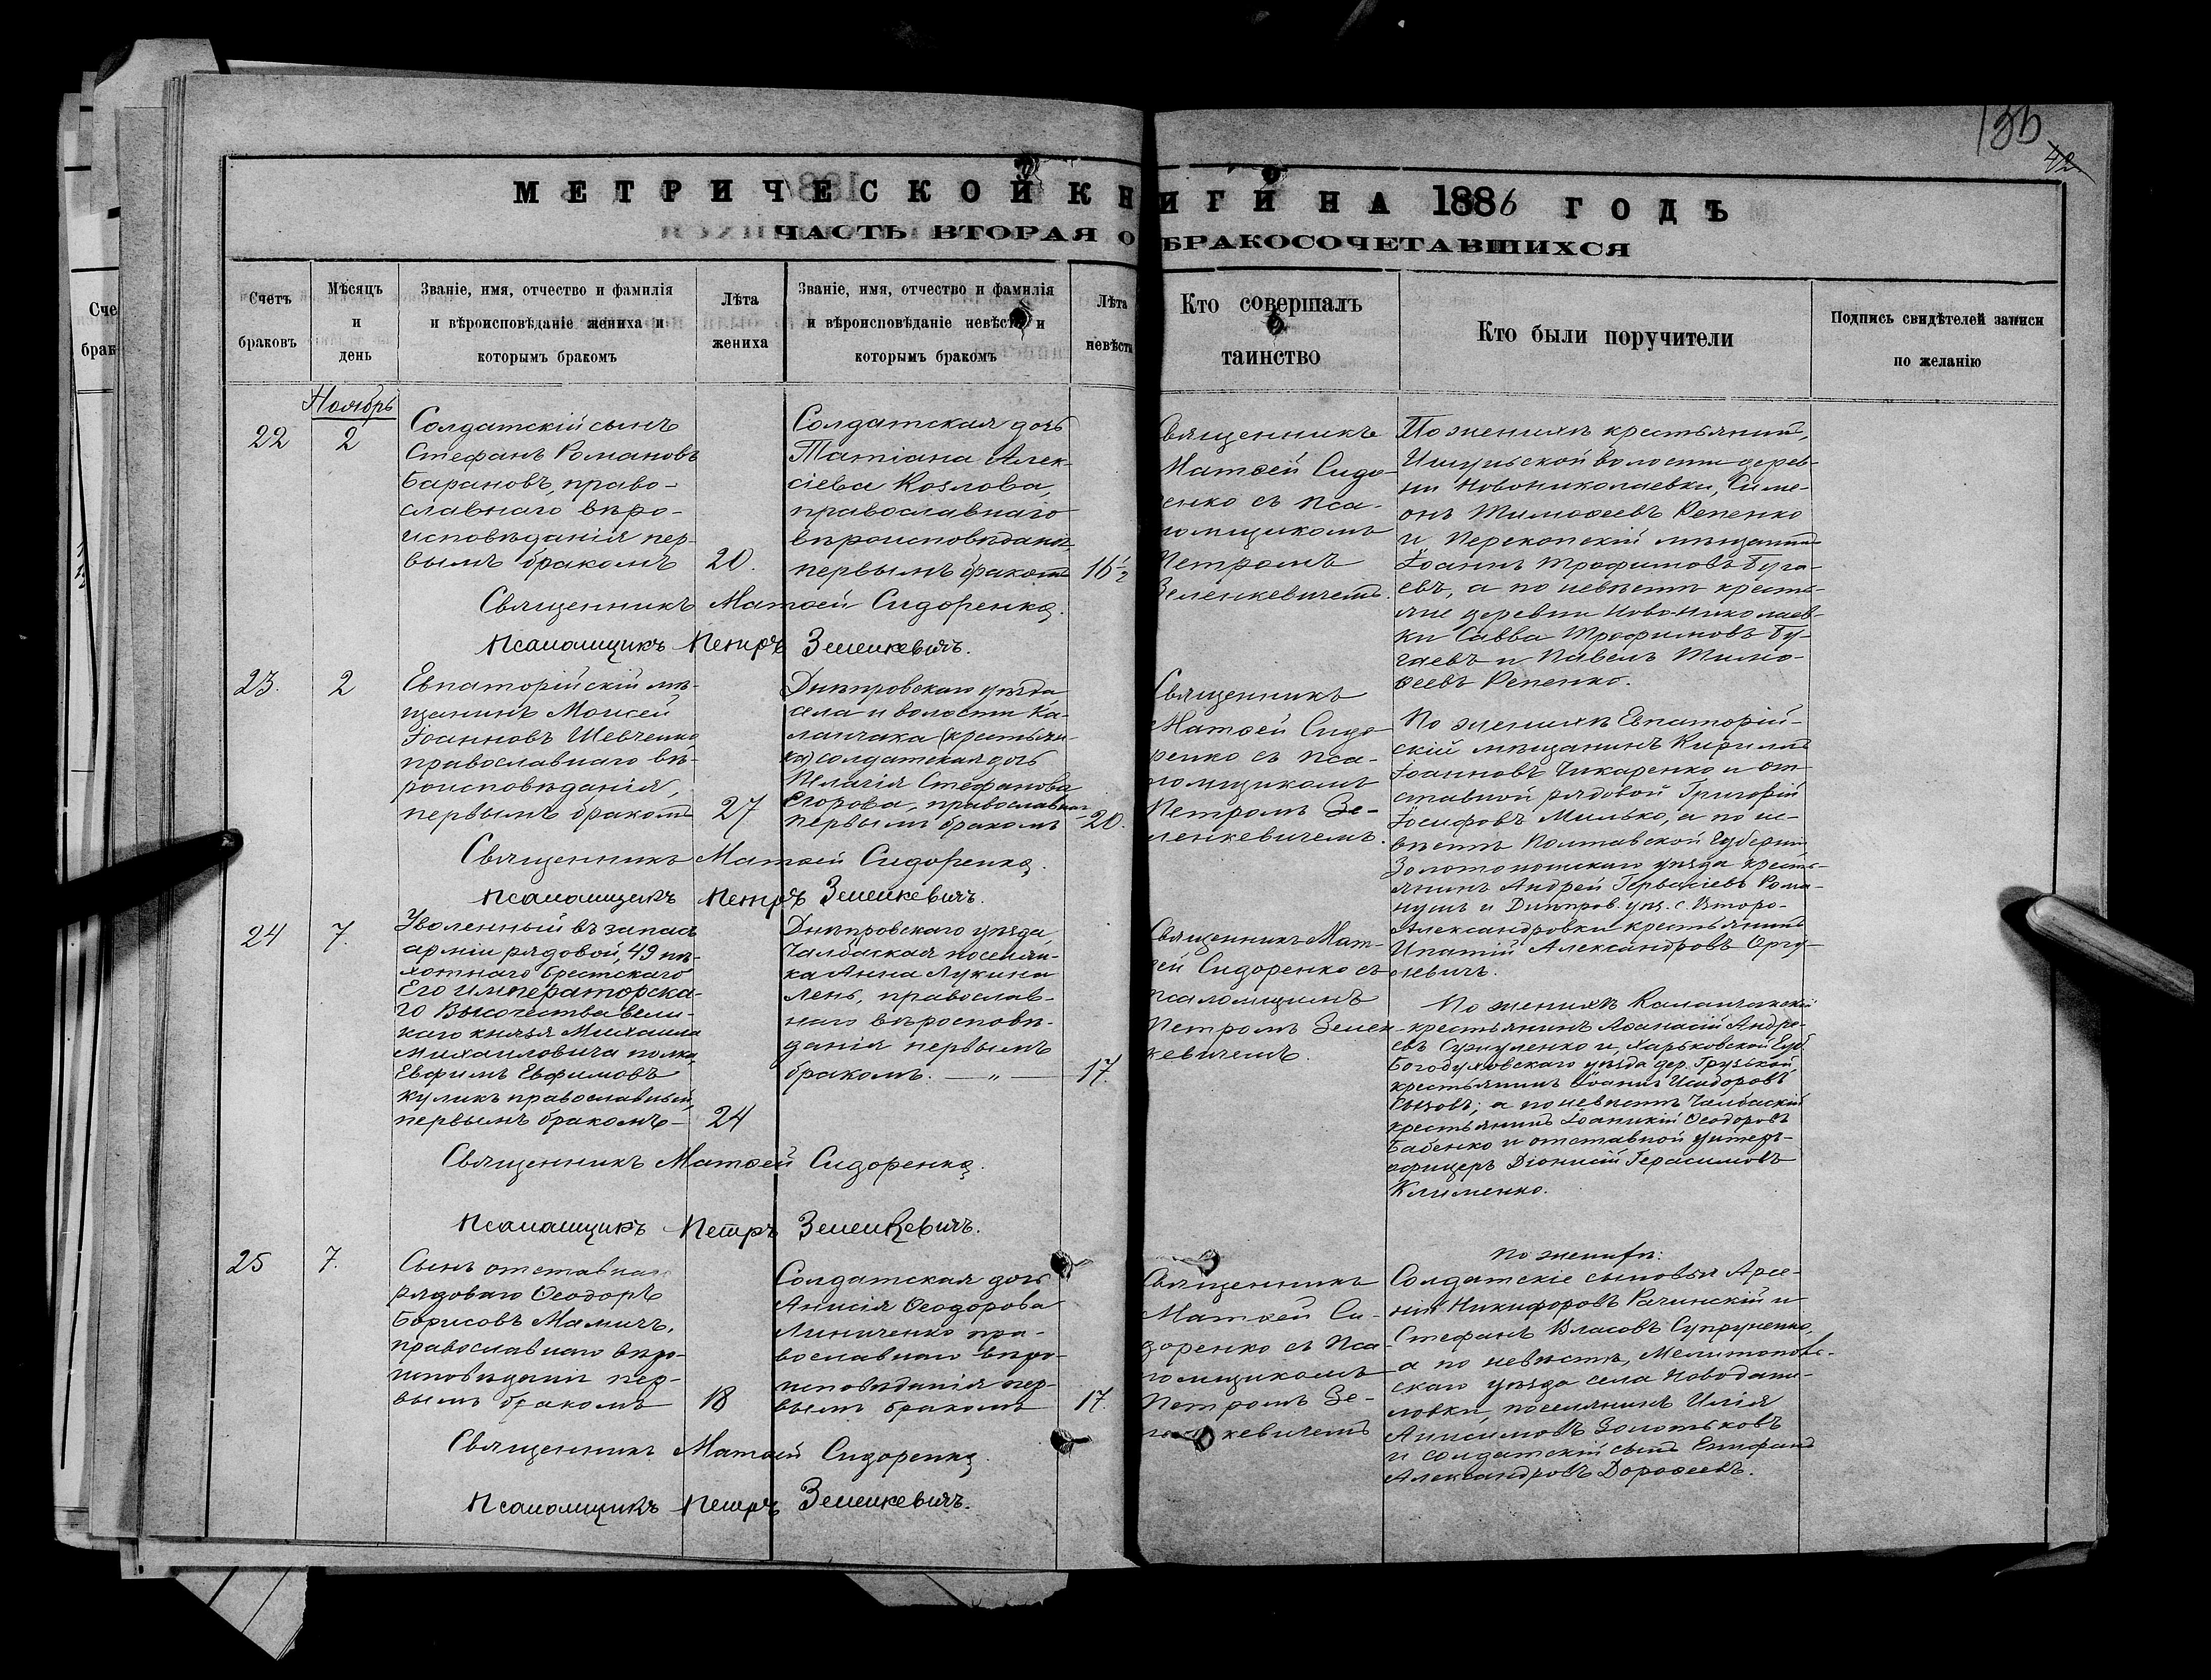 136
42
МЕТРИЧЕСКОЙ КНИГИ НА 1886 ГОДЪ
ЧАСТЬ ВТОРАЯ О БРАКОСОЧЕТАВШИХСЯ
Счетъ
браковъ
Мѣсяцъ
и
день
Званіе, имя, отчество и фамилія
и вѣроисповѣданіе жениха и
которымъ бракомъ
Лѣта
жениха
Званіе, имя, отчество и фамилія
и вѣроисповѣданіе невѣсты и
которымъ бракомъ
Лѣта
невѣсты
Кто совершалъ
таинство
Кто были поручители
Подпись свидѣтелей записи
по желанію
Ноябрь
22
2
Солдатскій сынъ
Стефанъ Романовъ
Барановъ, право-
славнаго вѣро-
исповѣданія пер-
вымъ бракомъ
20.
Солдатская дочь
Татіана Алек-
сіева Козлова,
православнаго
вѣроисповѣдані
первымъ бракомъ
16½
Священникъ
Матѳей Сидо
енко съ пса-
ломщикомъ
Петромъ
Зеленкевичемъ.
По женихѣ крестьянинъ,
волости дерев-
ни Новониколаевки, Симе-
онъ Тимоѳеевъ Репенко
и Перекопскій мѣщанинъ
Іоаннъ Трофимовъ Буга-
евъ, а по невѣстѣ кресть-
яне деревни Ново-Николаев-
ки Савва Трофимовъ Бу-
гаевъ и Павелъ Тимо-
ѳеевъ Репенко.
Священникъ Матѳей Сидоренко.
Псаломщикъ Петръ Зеленкевичъ.
23.
2
Евпаторійскій мѣ-
щанинъ Моисей
Іоанновъ Шевченко
православнаго вѣ-
роисповѣданія,
первымъ бракомъ
27
Днѣпровскаго уѣзда
села и волости Ка-
ланчака (крестьян-
ка) солдатская дочь
Пелагія Стефанова
Егорова, православнаго
первымъ бракомъ
20.
Священникъ
Матѳей Сидо
ренко съ пса-
ломщикомъ
Петромъ Зе-
ленкевичемъ.
По женихѣ Евпаторій-
скій мѣщанинъ Кириллъ
Іоанновъ Чикаренко и от-
ставной рядовой Григорій
Іосифовъ Милько, а по не-
вѣстѣ Полтавской Губерніи
Золотоношскаго уѣзда кресть-
янинъ Андрей Гервасіевъ Рома-
нушъ и Днѣпров. уѣз. с. Второ-
Александровки крестьянинъ
Ипатій Александровъ
Священникъ Матѳей Сидоренко.
Псаломщикъ Петръ Зеленкевичъ.
24
7.
Уволенный въ запасъ
арміи рядовой, 49 пѣ-
хотнаго Брестскаго
Его Императорска-
го Высочества вели-
каго князя Михаила
Михаиловича полка,
Евфимъ Евфимовъ
Куликъ православный,
первымъ бракомъ-
24
Днѣпровскаго уѣзда,
Чалбаская поселян-
ка Анна Лукина
Лень, православ-
наго вѣроисповѣ-
данія первымъ
бракомъ. — „ —
17.
Священникъ Мат-
ѳей Сидоренко съ
псаломщикомъ
Петромъ Зелен-
кевичемъ.
По женихѣ Каланчакскій
крестьянинъ Аѳанасій Андре-
евъ и, Харьковской Губ.
Богодуховскаго уѣзда дер. Грузской
крестьянинъ Іоаннъ Исидоровъ
а по невѣстѣ Чалбаскій
крестьянинъ Іоанникій Ѳеодоровъ
Бабенко и отставной унтеръ-
офицеръ Діонисій Герасимовъ
Клименко.
Священникъ Матѳей Сидоренко.
Псаломщикъ Петръ Зеленкевичъ.
25
7.
Сынъ отставнаго
рядоваго Ѳеодоръ
Борисовъ Мамичъ,
православнаго вѣро-
исповѣданія пер-
вымъ бракомъ
18
Солдатская дочь
Анисія Ѳеодорова
Линиченко пра-
вославнаго вѣро-
исповѣданія пер-
вымъ бракомъ
17.
Священникъ
Матѳей Си-
доренко съ пса-
ломщикомъ
Петромъ Зе-
ленкевичемъ
по женихѣ:
Солдатскіе сыновья Арсе-
ній Никифоровъ Рачинскій и
Стефанъ Власовъ Супруненко,
а по невѣстѣ, Мелитополь-
скаго уѣзда села Новодани-
ловки, поселянинъ Илія
Анисимовъ Золотьковъ
и солдатскій сынъ Епифаній
Александровъ Дороѳеевъ.
Священникъ Матѳей Сидоренко.
Псаломщикъ Петръ Зеленкевичъ.